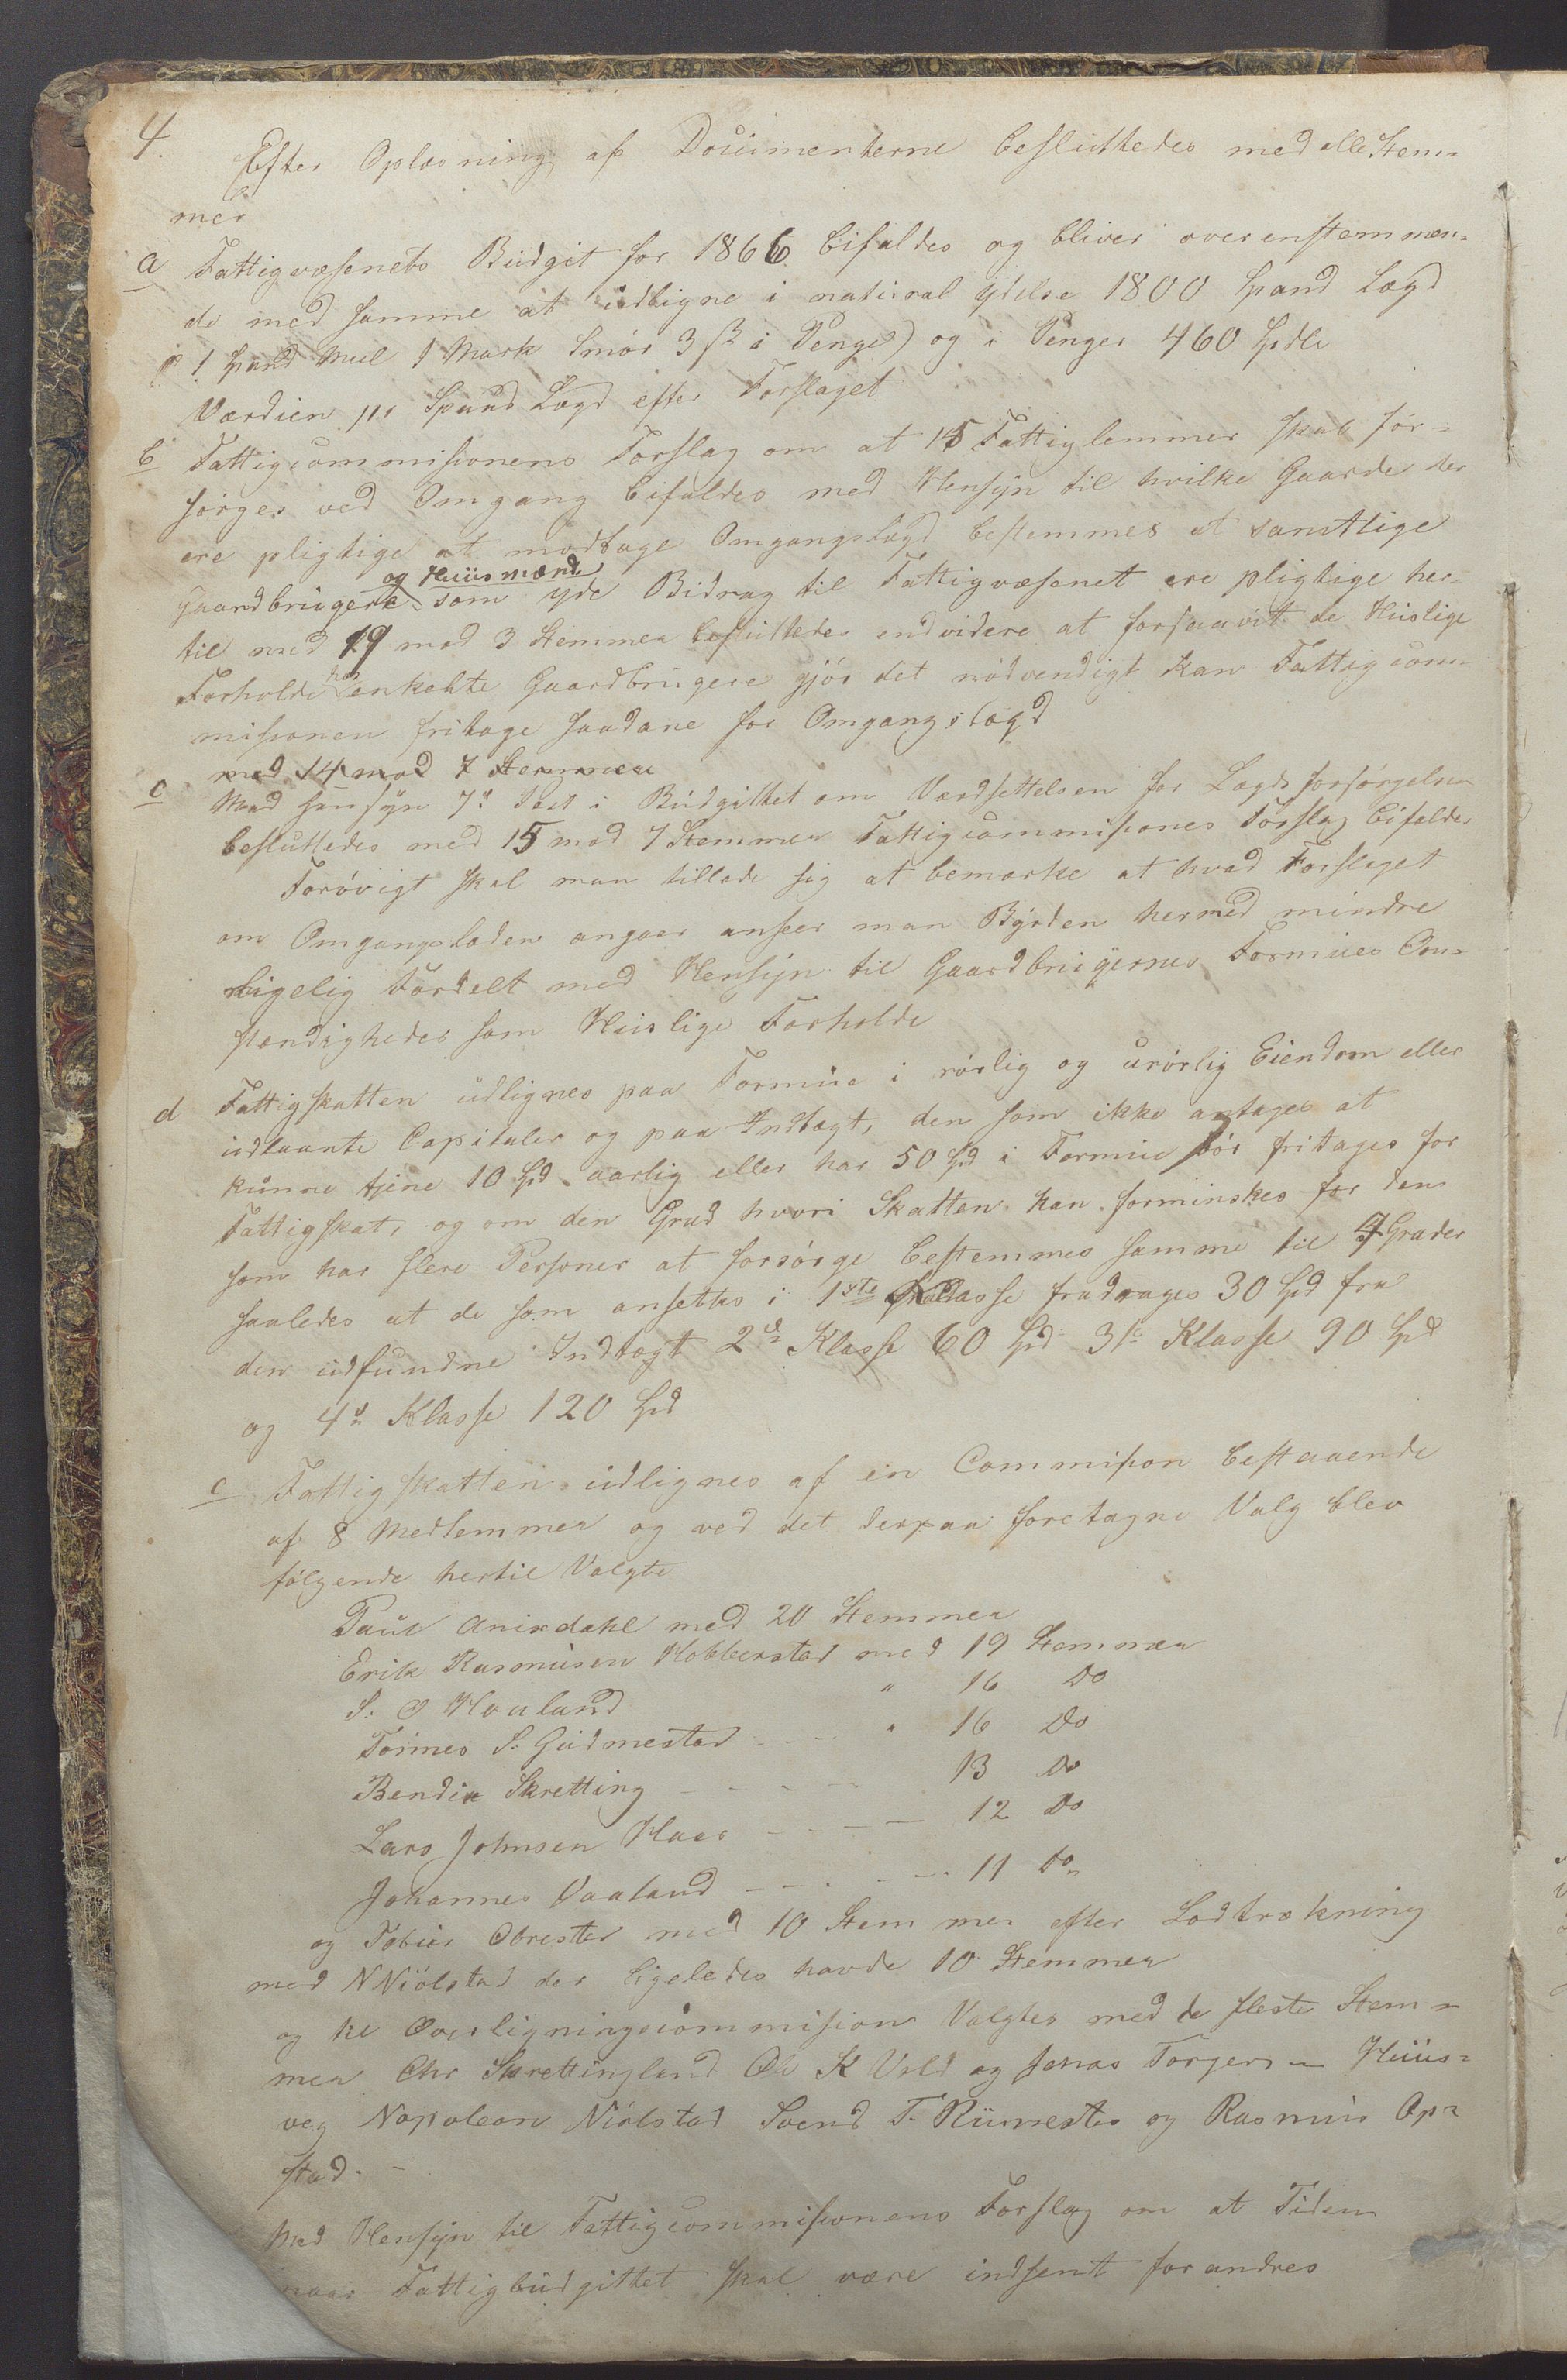 4.
Efter Oplæsning af Documenterne besluttedes med alle Stem-
mer
a Fattigvæsenets Budgit for 1866 bifaldes og bliver overenstemmen-
de med samme at udligne i natural ydelse 1800 Spand Lægd
1 Spand Meel 1 Mark Smör 3 ß i Penge) og i Penger 460 Spdlr
Værdien pr Spand Lægd efter Forslaget
b Fattigcommisionens Forslag om at 15 Fattiglemmer skal för-
sörges ved Omgang bifaldes med Hensyn til hvilke Gaarde der
ere pligtige at modtage Omgangslægd bestemmes at samtlige
og Huusmænd
Gaardbrugere som yde Bidrag til Fattigvæsenet ere pligtige her-
til med 19 mod 3 Stemmer besluttedes endvidere at forsaavit de Huslige
Forholde hos enkelte Gaardbrugere gjör det nödvendigt kan Fattigcom-
misionen fritage saadane for Omgangslægd
med 14 mod 7 Stemmer
c Med Hensyn 7de Post i Budgittet om Værdsettelsen for Lægds forsörgelsen
besluttedes med 15 mod 7 Stemmer Fattigcommisiones Forslag bifaldes
Forövigt skal man tillade sig at bemærke at hvad Forslaget
om Omgangsladen angaar anseer man Byrden hermed mindre
ligelig Fordelt med Hensyn til Gaardbrugernes Formues Om-
stændigheder som Huslige Forholde
d Fattigskatten udlignes paa Formue i rörlig og urörlig Eiendom eller
udlaante Capitaler og paa Indtægt, den som ikke antages at
kunne tjene 10 Spd aarlig eller har 50 Spd i Formue bör fritages for
Fattigskat, og om den Grad hvori Skatten kan forminskes for den
som har flere Personer at forsörge bestemmes samme til 4 Grader
saaledes at de som ansettes i 1ste Klasse fradrages 30 Spd fra
den udfundne Indtægt 2d Klasse 60 Spd 3de Klasse 90 Spd
og 4de Klasse 120 Spd
e Fattigskatten udlignes af en Commision bestaaende
af 8 Medlemmer og ved det derpaa foretagne Valg blev
fölgende hertil Valgte
Paul Anixdahl med 20 Stemmer
Erik Rasmusen Hobberstad med 19 Stemmer
S. O Houland " 16 Do
Tönnes S. Gudmestad " 16 Do
Bendix Skretting 13 Do
Lars Johnsen Haar 12 Do
Johannes Vaaland 11 Do
og Tobias Obrestad med 10 Stemmer efter Lodtrækning
med N Niölstad der ligeledes havde 10 Stemmer
og til Overligningscommision Valgtes med de fleste Stem-
mer Chr Skrettingland Ole K Vold og Jonas Torgers- Huus-
veg Napoleon Niölstad Svend T. Rimestad og Rasmus Op-
stad.
Med Hensyn til Fattigcommisionens Forslag om at Tiden
naar Fattigbudgittet skal være indsent forandres